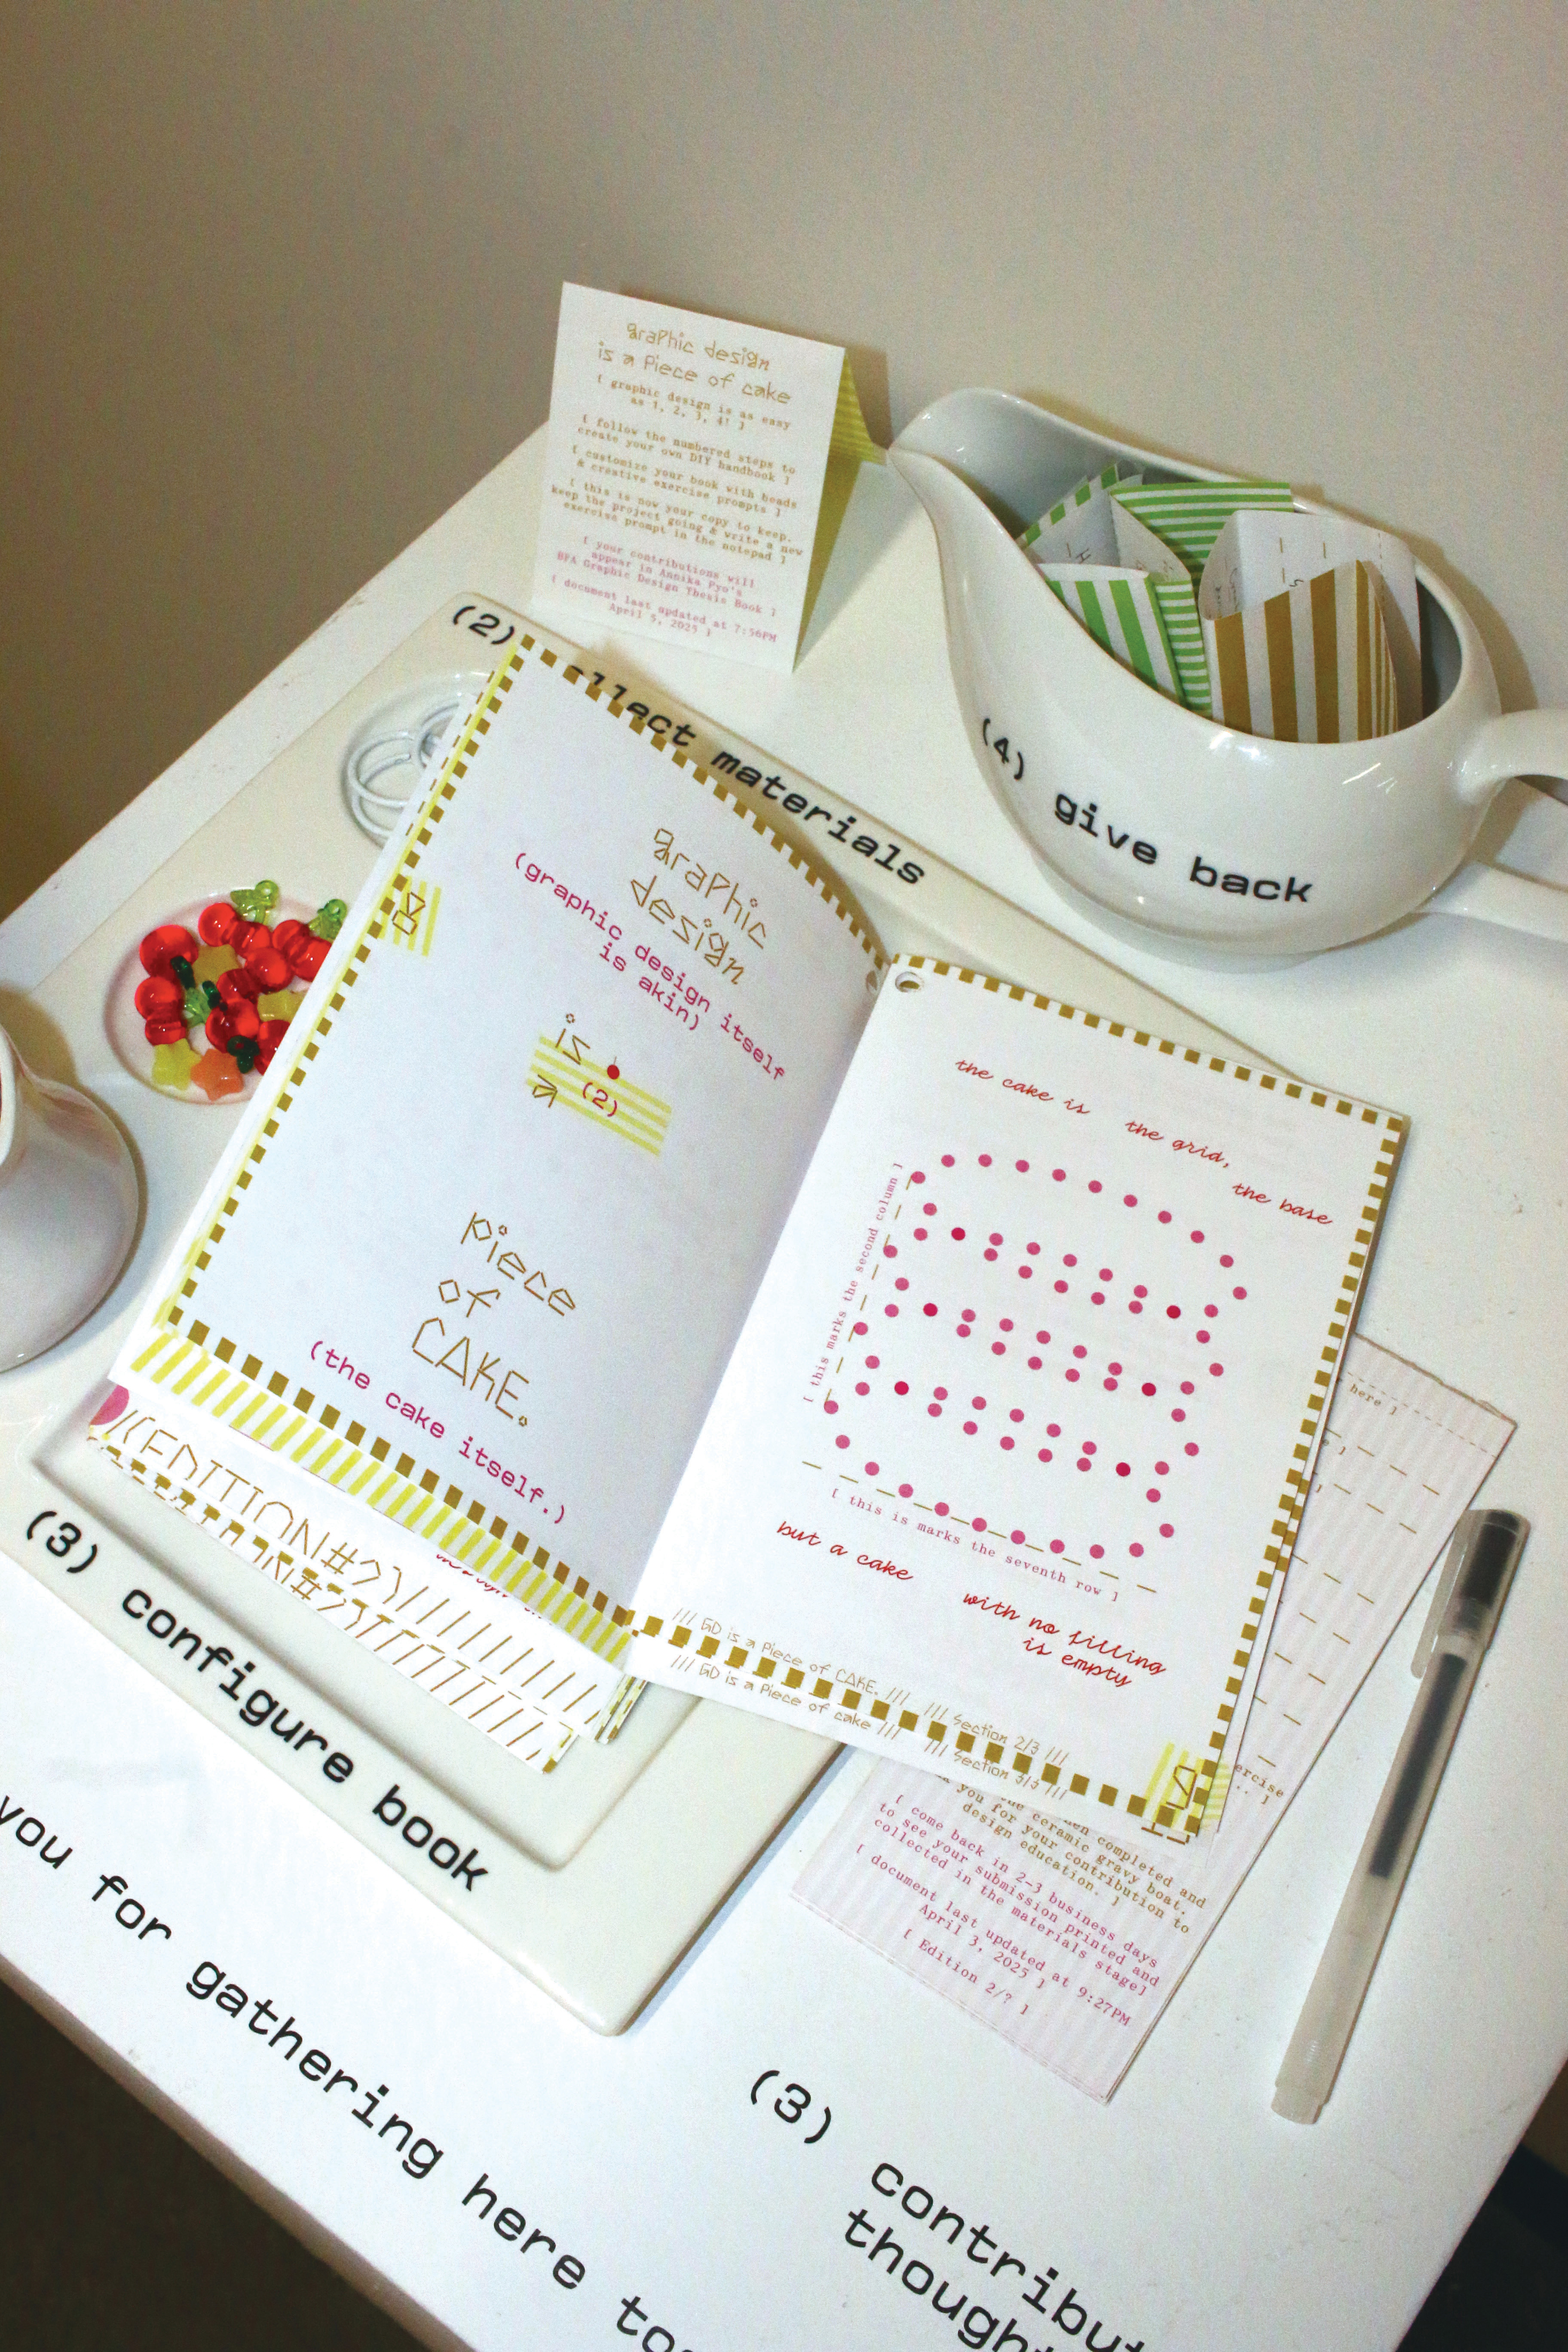 graphic design
is a Piece of cake
[ graphic design is as easy
as 1, 2, 3, 4! ]
[ follow the numbered steps to
create your own DIY handbook ]
[ customize your book with beads
& creative exercise prompts ]
[ this is now your copy to keep.
keep the project going & write a new
exercise prompt in the notepad ]
[ your contributions will
appear in Annika Pyo's
BFA Graphic Design Thesis Book ]
[ document last updated at 7:56PM
April 5, 2025 ]
(2)
llect materials
(4) give back
graphic
design
(graphic design itself
is akin)
is
a
(2)
piece
of
CAKE.
(the cake itself.)
the cake is the grid,
the base
[ this marks the second column ]
[ this is marks the seventh row ]
but a cake
with no filling
is empty
/// GD is a Piece of CAKE. /// /// Section 2/3 ///
/// GD is a Piece of cake /// /// Section 3/3 ///
/(EDITION#2)/////////
N#2)/////////
(3) configure book
here ]
ercise
.. ]
when completed and
the ceramic gravy boat.
you for your contribution to
design education. ]
[ come back in 2-3 business days
to see your submission printed and
collected in the materials stage]
[ document last updated at 9:27PM
April 3, 2025 ]
[ Edition 2/? ]
you for gathering here to
(3) contribut
thought